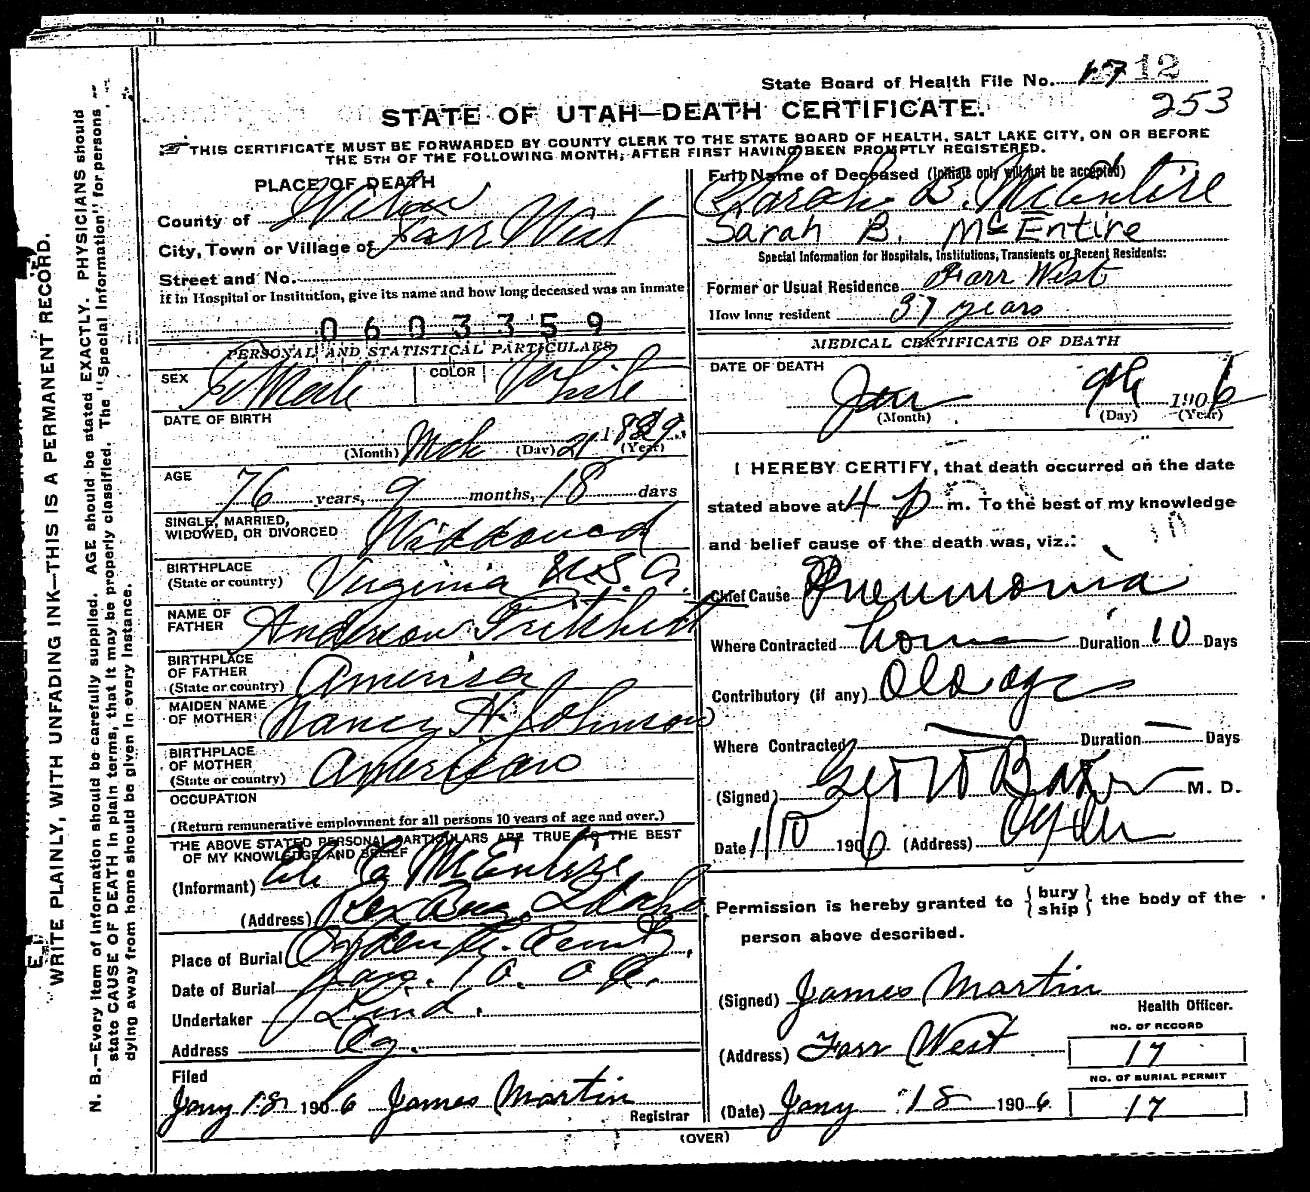 State Board of Health File No. 12
253
STATE OF UTAH—DEATH CERTIFICATE.
THIS CERTIFICATE MUST BE FORWARDED BY COUNTY CLERK TO THE STATE BOARD OF HEALTH, SALT LAKE CITY, ON OR BEFORE
THE 5TH OF THE FOLLOWING MONTH, AFTER FIRST HAVING BEEN PROMPTLY REGISTERED.
PLACE OF DEATH
County of Weber
City, Town or Village of Farr West
Street and No.
If in Hospital or Institution, give its name and how long deceased was an inmate
0603359
PERSONAL AND STATISTICAL PARTICULARS
SEX Female COLOR White
DATE OF BIRTH
(Month) Mch (Day) 21 1829 (Year)
AGE 76 years, 9 months, 18 days
SINGLE, MARRIED,
WIDOWED, OR DIVORCED Widdowed
BIRTHPLACE
(State or country) Virginia U.S.A.
NAME OF
FATHER Anderson Pritchett
BIRTHPLACE
OF FATHER
(State or country) America
MAIDEN NAME
OF MOTHER Nancy H. Johnson
BIRTHPLACE
OF MOTHER
(State or country) American
OCCUPATION
(Return remunerative employment for all persons 10 years of age and over.)
THE ABOVE STATED PERSONAL PARTICULARS ARE TRUE TO THE BEST
OF MY KNOWLEDGE AND BELIEF
(Informant) McEntire
(Address) Idaho
Place of Burial Ogden
Date of Burial Jan. 10. 06.
Undertaker Lind.
Address Og.
Filed
Jany 18 1906 James Martin
Registrar
Full Name of Deceased (Initials only will not be accepted)
Sarah B. McEntire
Sarah B. McEntire
Special Information for Hospitals, Institutions, Transients or Recent Residents:
Former or Usual Residence Farr West
How long resident 37 years
MEDICAL CERTIFICATE OF DEATH
DATE OF DEATH
Jan 9th 1906
(Month) (Day) (Year)
I HEREBY CERTIFY, that death occurred on the date
stated above at 4 p m. To the best of my knowledge
and belief cause of the death was, viz.:
Chief Cause Pneumonia
Where Contracted home Duration 10 Days
Contributory (if any) Old age
Where Contracted — Duration — Days
(Signed) Geo W Baker M. D.
Date 1/10 1906 (Address) Ogden
Permission is hereby granted to { bury ship } the body of the
person above described.
(Signed) James Martin
Health Officer.
(Address) Farr West
NO. OF RECORD
17
NO. OF BURIAL PERMIT
17
(Date) Jany 18 1906
(OVER)
WRITE PLAINLY, WITH UNFADING INK—THIS IS A PERMANENT RECORD.
N. B.—Every item of information should be carefully supplied. AGE should be stated EXACTLY. PHYSICIANS should
state CAUSE OF DEATH in plain terms, that it may be properly classified. The "Special Information" for persons
dying away from home should be given in every instance.